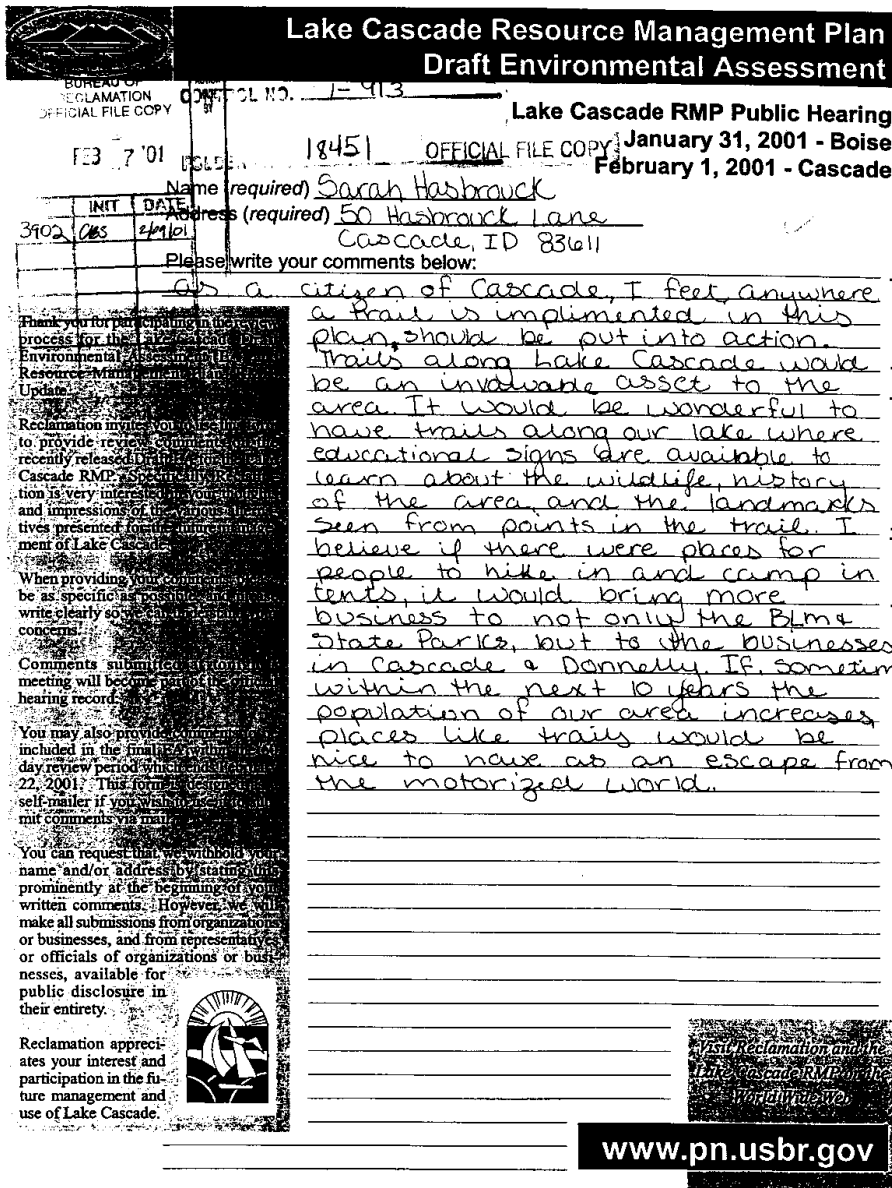 Lake Cascade Resource Management Plan
Draft Environmental Assessment
BUREAU OF
RECLAMATION
OFFICIAL FILE COPY
CONTROL NO. 1-913
Lake Cascade RMP Public Hearing
January 31, 2001 - Boise
February 1, 2001 - Cascade
FEB 7 '01
18451
OFFICIAL FILE COPY
INIT DATE
3902 2/09/01
Name (required) Sarah Hasbrouck
Address (required) 50 Hasbrouck Lane
Cascade, ID 83611
Please write your comments below:
as a citizen of Cascade, I feel, anywhere
a trail is implimented in this
plan, should be put into action.
Trails along Lake Cascade would
be an invaluable asset to the
area. It would be wonderful to
have trails along our lake where
educational signs are available to
learn about the wildlife, history
of the area, and the landmarks
seen from points in the trail. I
believe if there were places for
people to hike in and camp in
tents, it would bring more
business to not only the BLM &
State Parks, but to the businesses
in Cascade & Donnelly. If, sometim
within the next 10 years the
population of our area increases,
places like trails would be
nice to have as an escape from
the motorized world.
Thank you for participating in the review
process for the Lake Cascade Draft
Environmental Assessment
Resource Management Plan
Update.
Reclamation invites you to use this
to provide review comments
recently released Draft
Cascade RMP. Specifically, Reclama-
tion is very interested in your
and impressions of the various alterna-
tives presented for the future manage-
ment of Lake Cascade.
When providing your comments
be as specific as possible
write clearly so we can
concerns.
Comments submitted
meeting will become part of the official
hearing record.
You may also provide comments
included in the final EA within
day review period which
22, 2001. This form is designed
self-mailer if you wish to
mit comments via mail.
You can request that we withhold your
name and/or address by stating this
prominently at the beginning of your
written comments. However, we will
make all submissions from organizations
or businesses, and from representatives
or officials of organizations or busi-
nesses, available for
public disclosure in
their entirety.
Reclamation appreci-
ates your interest and
participation in the fu-
ture management and
use of Lake Cascade.
Visit Reclamation and the
Lake Cascade RMP on the
World Wide Web
www.pn.usbr.gov